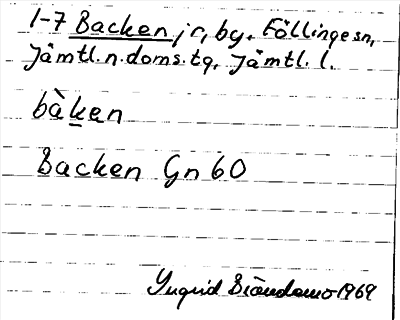 1-7 Backen jr, by. Föllinge sn,
Jämtl. n. doms. tg, Jämtl. l.
bàken
Backen Gn 60
Ingrid 1969